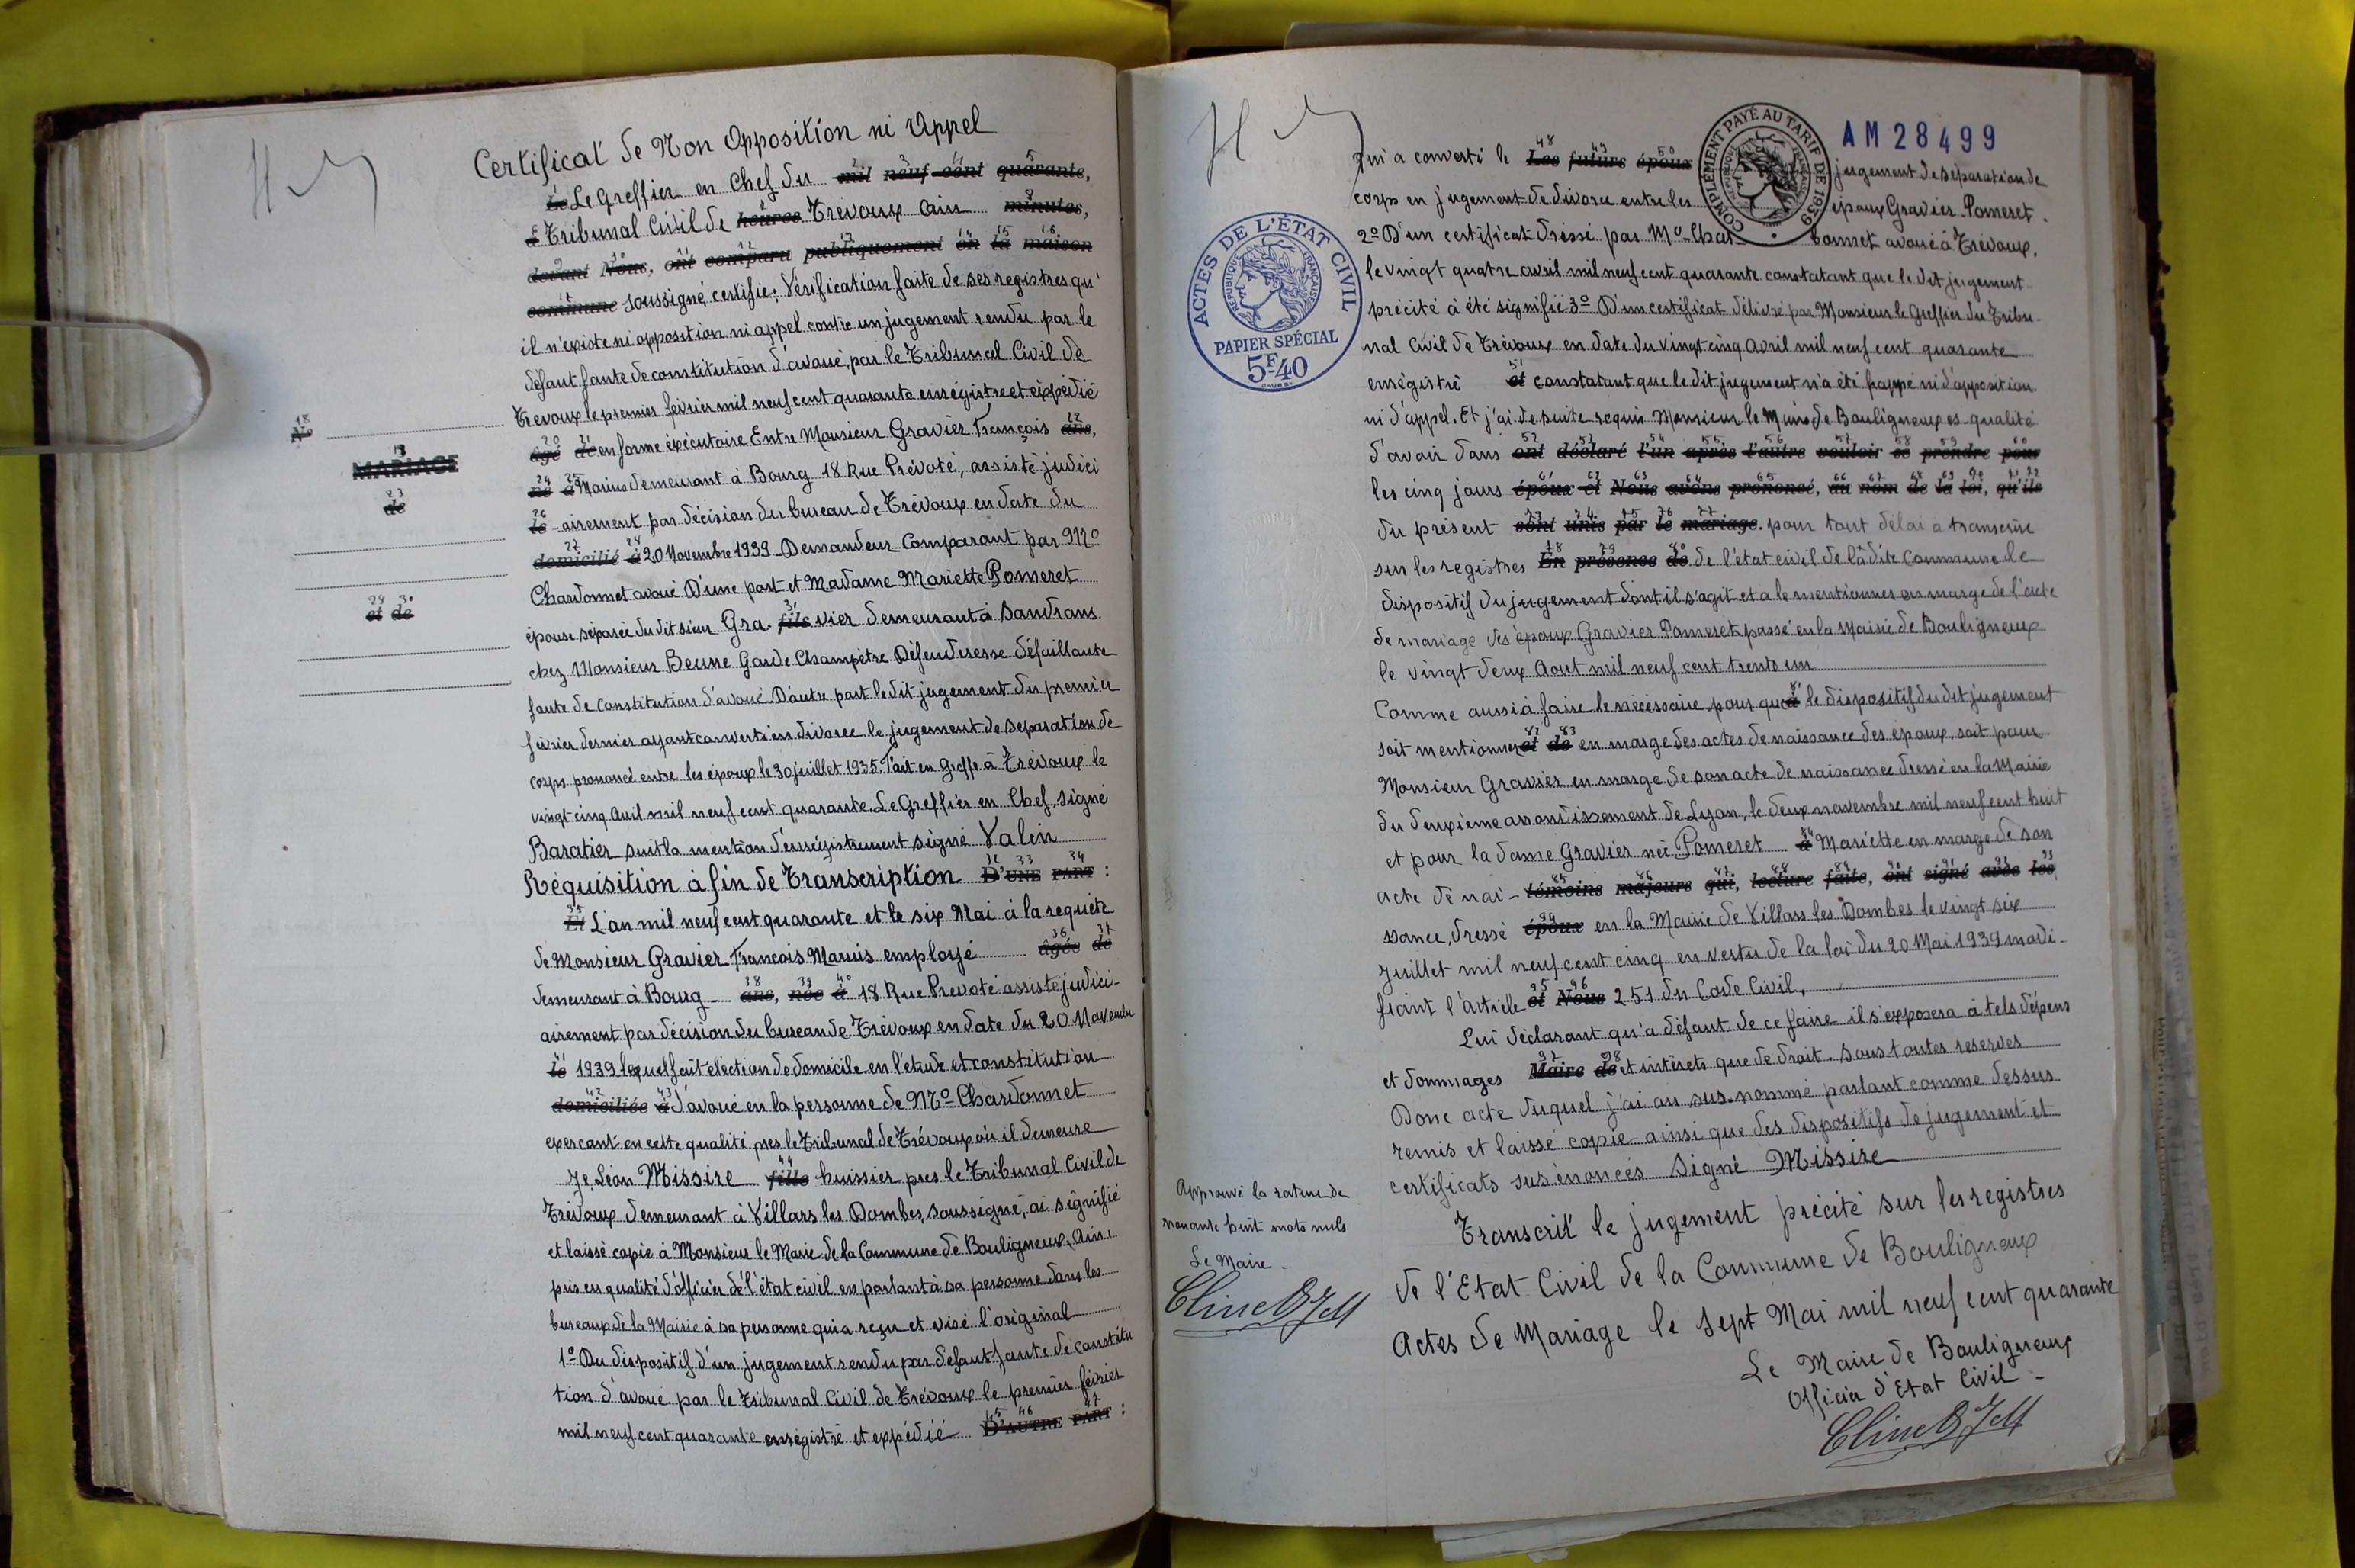 Certificat de Non Opposition ni Appel
Le Le Greffier en Chef du mil neuf cent quarante,
à Tribunal Civil de heures Trévoux Ain minutes,
devant Nous, ont comparu publiquement en la maison
commune soussigné certifie: Vérification faite de ses registres qu'
il n'existe ni opposition ni appel contre un jugement rendu par le
défaut faute de constitution d'avoué, par le Tribunal Civil de
Trevoux le premier février mil neuf cent quarante enregistré et expédié
18
No
19
MARIAGE
20 21 22
âgé de en forme exécutoire Entre Monsieur Gravier François ans,
23
de
24 25
né à Marius demeurant à Bourg 18 Rue Prévoté, assisté judici
26
le - airement par décision du bureau de Trévoux en date du
27 28
domicilié à 20 Novembre 1939 Demandeur Comparant par Mo
Chardonnet avoué D'une part et Madame Mariette Pomeret
29 30
et de
31
épouse séparée du dit sieur Gra- fils vier demeurant à Sandrans
chez Monsieur Beune Garde Champêtre Défenderesse défaillante
faute de Constitution d'avoué. D'autre part le dit jugement du premier
février dernier ayant converti en divorce le jugement de séparation de
corps prononcé entre les époux le 30 juillet 1935. Fait en Greffe à Trévoux le
vingt cinq Avril mil neuf cent quarante. Le Greffier en Chef, signé
Baratier suit la mention d'enregistrement signé Valin
32 33 34
Réquisition à fin de Transcription D'UNE PART :
35
Et L'an mil neuf cent quarante et le six Mai à la requête
36 37
de Monsieur Gravier François Marius employé âgée de
38 39 40
demeurant à Bourg - ans, née à 18 Rue Prevoté assisté judici-
airement par décision du bureau de Trévoux en date du 20 Novembre
41
le 1939 lequel fait élection de domicile en l'étude et constitution
42 43
domiciliée à d'avoué en la personne de Mo Chardonnet
exercant en cette qualité pres le Tribunal de Trévoux où il demeure
44
Je Léon Missire fille huissier pres le Tribunal Civil de
Trévoux demeurant à Villars les Dombes, soussigné, ai signifié
et laissé copie à Monsieur le Maire de la Commune de Bouligneux, Ain
pris en qualité d'officier de l'état civil en parlant à sa personne dans les
bureaux de la Mairie à sa personne qui a reçu et visé l'original
1o Du dispositif d'un jugement rendu par défaut faute de constitu
tion d'avoué par le Tribunal Civil de Trévoux le premier février
45 46 47
mil neuf cent quarante enregistré et expédié D'AUTRE PART :
COMPLÉMENT PAYÉ AU TARIF DE 1939
RÉPUBLIQUE FRANÇAISE
AM 28499
48 49 50
qui a converti le Les futurs époux jugement de séparation de
corps en jugement de divorce entre les époux Gravier Pomeret.
2o D'un certificat dressé par Mo Char- donnet avoué à Trévoux,
le vingt quatre avril mil neuf cent quarante constatant que le dit jugement
précité à été signifié 3o D'un certificat délivré par Monsieur le Greffier du Tribu-
nal Civil de Trévoux en date du vingt cinq Avril mil neuf cent quarante
51
enrégistré et constatant que le dit jugement n'a été frappé ni d'opposition
ni d'appel. Et j'ai de suite requis Monsieur le Maire de Bouligneux es-qualité
52 53 54 55 56 57 58 59 60
d'avoir dans ont déclaré l'un après l'autre vouloir se prendre pour
61 62 63 64 65 66 67 68 69 70 71 72
les cinq jours époux et Nous avons prononcé, au nom de la loi, qu'ils
73 74 75 76 77
du présent sont unis par le mariage. pour tout délai a transcrire
78 79 80
sur les registres En présence de de l'état civil de la dite Commune le
dispositif du jugement dont il s'agit et a le mentionner en marge de l'acte
de mariage des époux Gravier Pomeret passé en la Mairie de Bouligneux
le vingt deux Aout mil neuf cent trente un
81
Comme aussi à faire le nécessaire pour que à le dispositif du dit jugement
82 83
soit mentionner et de en marge des actes de naissance des époux, soit pour
Monsieur Gravier en marge de son acte de naissance dressé en la Mairie
du deuxième arrondissement de Lyon, le deux novembre mil neuf cent huit
84
et pour la dame Gravier née Pomeret à Mariette en marge de son
85 86 87 88 89 90 91 92 93
acte de nai- témoins majeurs qui, lecture faite, ont signé avec les
94
ssance, dressé époux en la Mairie de Villars les Dombes le vingt six
Juillet mil neuf cent cinq en vertu de la loi du 20 Mai 1939 modi-
95 96
fiant l'article et Nous 251 du Code Civil,
Lui déclarant qu'a défaut de ce faire il s'exposera à tels dépens
97 98
et dommages Maire de et intérets que de droit. Sous toutes reserves
Donc acte duquel j'ai au sus-nommé parlant comme dessus
remis et laissé copie ainsi que des dispositifs de jugement et
certificats sus énoncés Signé Missire
Transcrit le jugement précité sur les registres
de l'Etat Civil de la Commune de Bouligneux
Actes de Mariage le Sept Mai mil neuf cent quarante
Le Maire de Bouligneux
Officier d'Etat Civil -
ACTES DE L'ÉTAT CIVIL
RÉPUBLIQUE FRANÇAISE
PAPIER SPÉCIAL
5F40
Approuvé la rature de
nonante huit mots nuls
Le Maire.